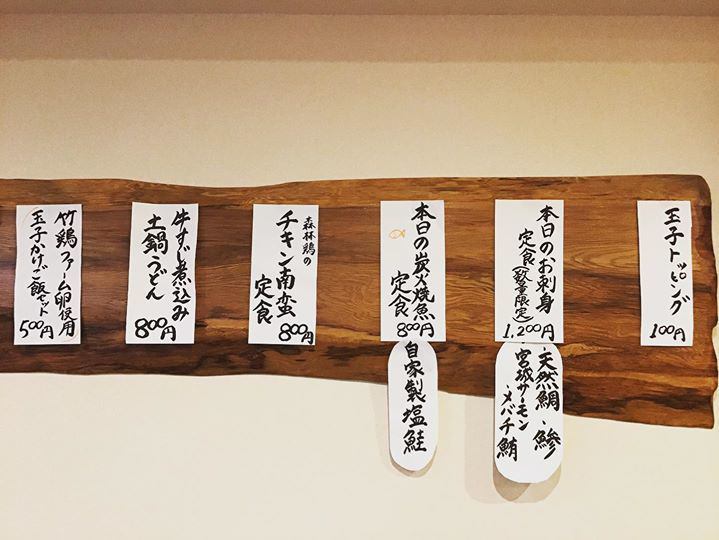 玉子トッピング
100円
本日のお刺身
定食(数量限定)
1,200円
・天然鯛・鰺
宮城サーモン
・メバチ鮪
本日の炭火焼魚
定食
800円
自家製塩鮭
森林鶏の
チキン南蛮
定食
800円
牛すじ煮込み
土鍋うどん
800円
竹鶏ファーム卵使用
玉子かけご飯セット
500円